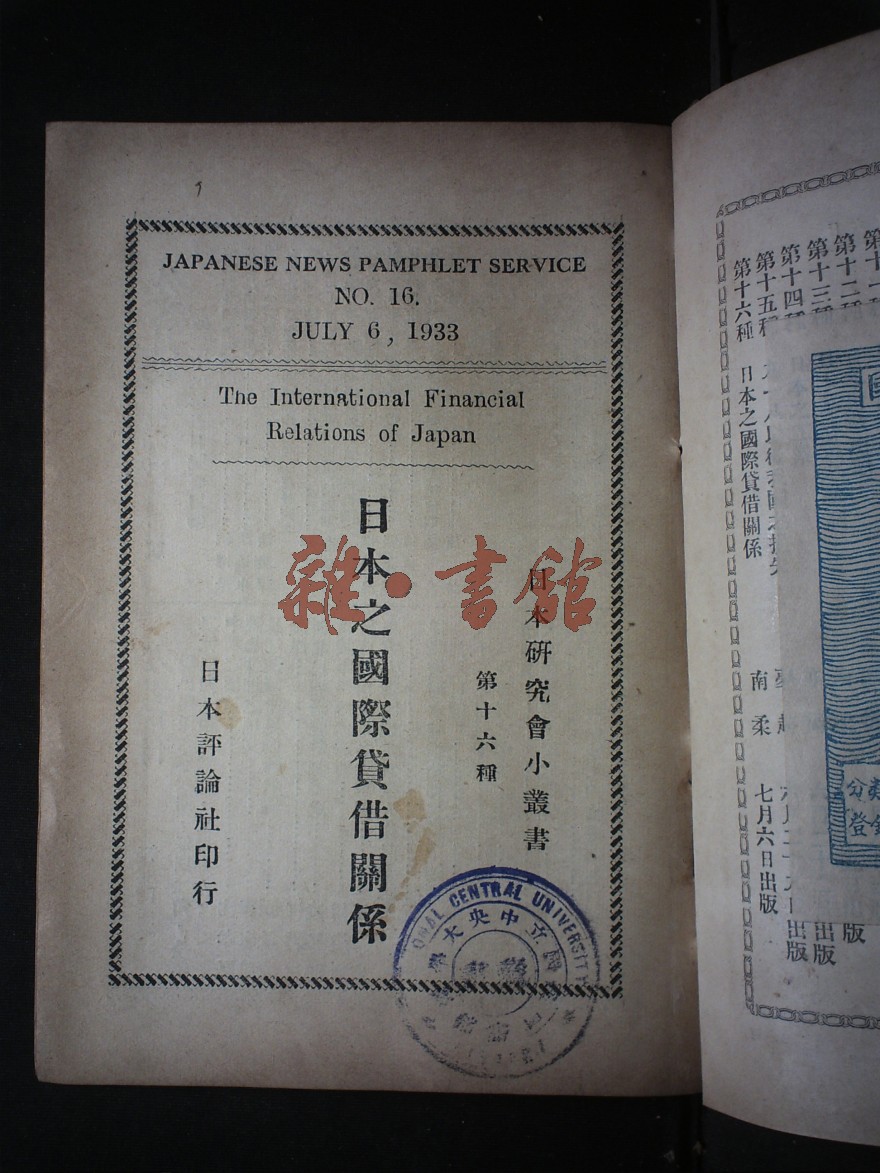 JAPANESE NEWS PAMPHLET SERVICE
NO. 16.
JULY 6, 1933
The International Financial
Relations of Japan
日本研究會小叢書
第十六種
日本之國際貸借關係
日本評論社印行
雜·書館
ONAL CENTRAL UNIVERSITY
國立中央大學
第十二
第十三種
第十四種
第十五種
第十六種 日本之國際貸借關係 南柔 七月六日出版
出版
出版
版
國
分類
登錄